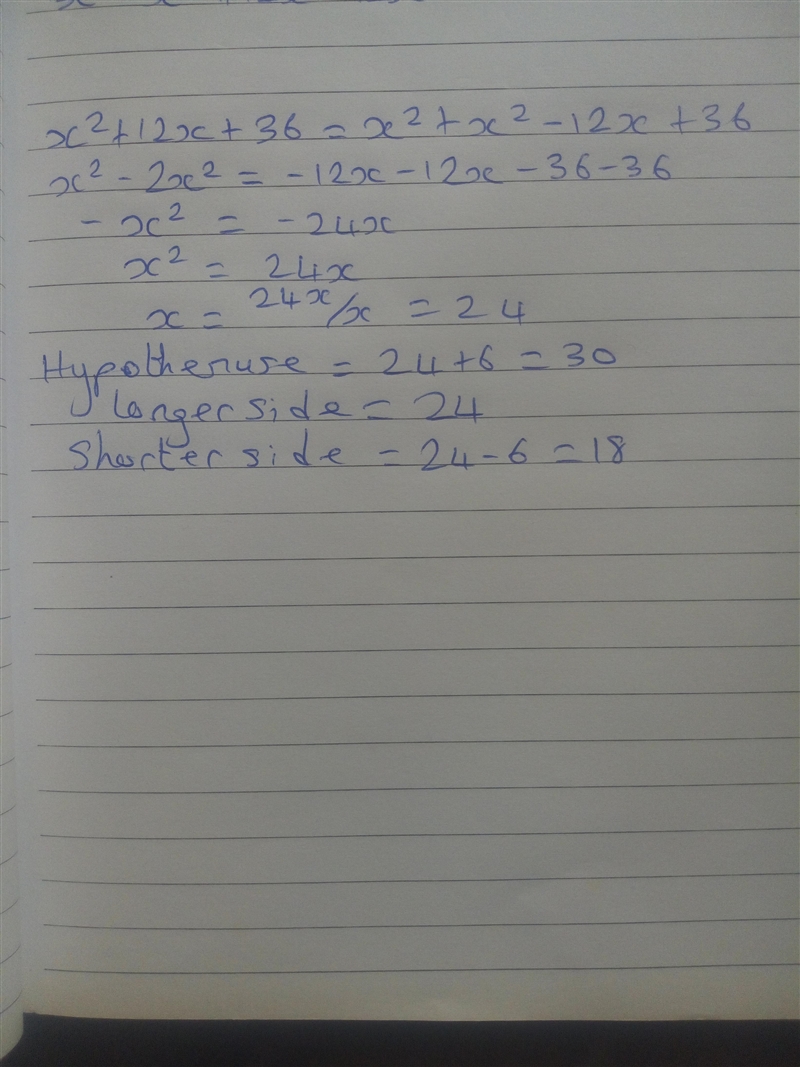 x² + 12x + 36 = x² + x² - 12x + 36
x² - 2x² = -12x - 12x - 36 - 36
- x² = - 24x
x² = 24x
x = 24x/x = 24
Hypothenuse = 24 + 6 = 30
Longer side = 24
Shorter side = 24 - 6 = 18